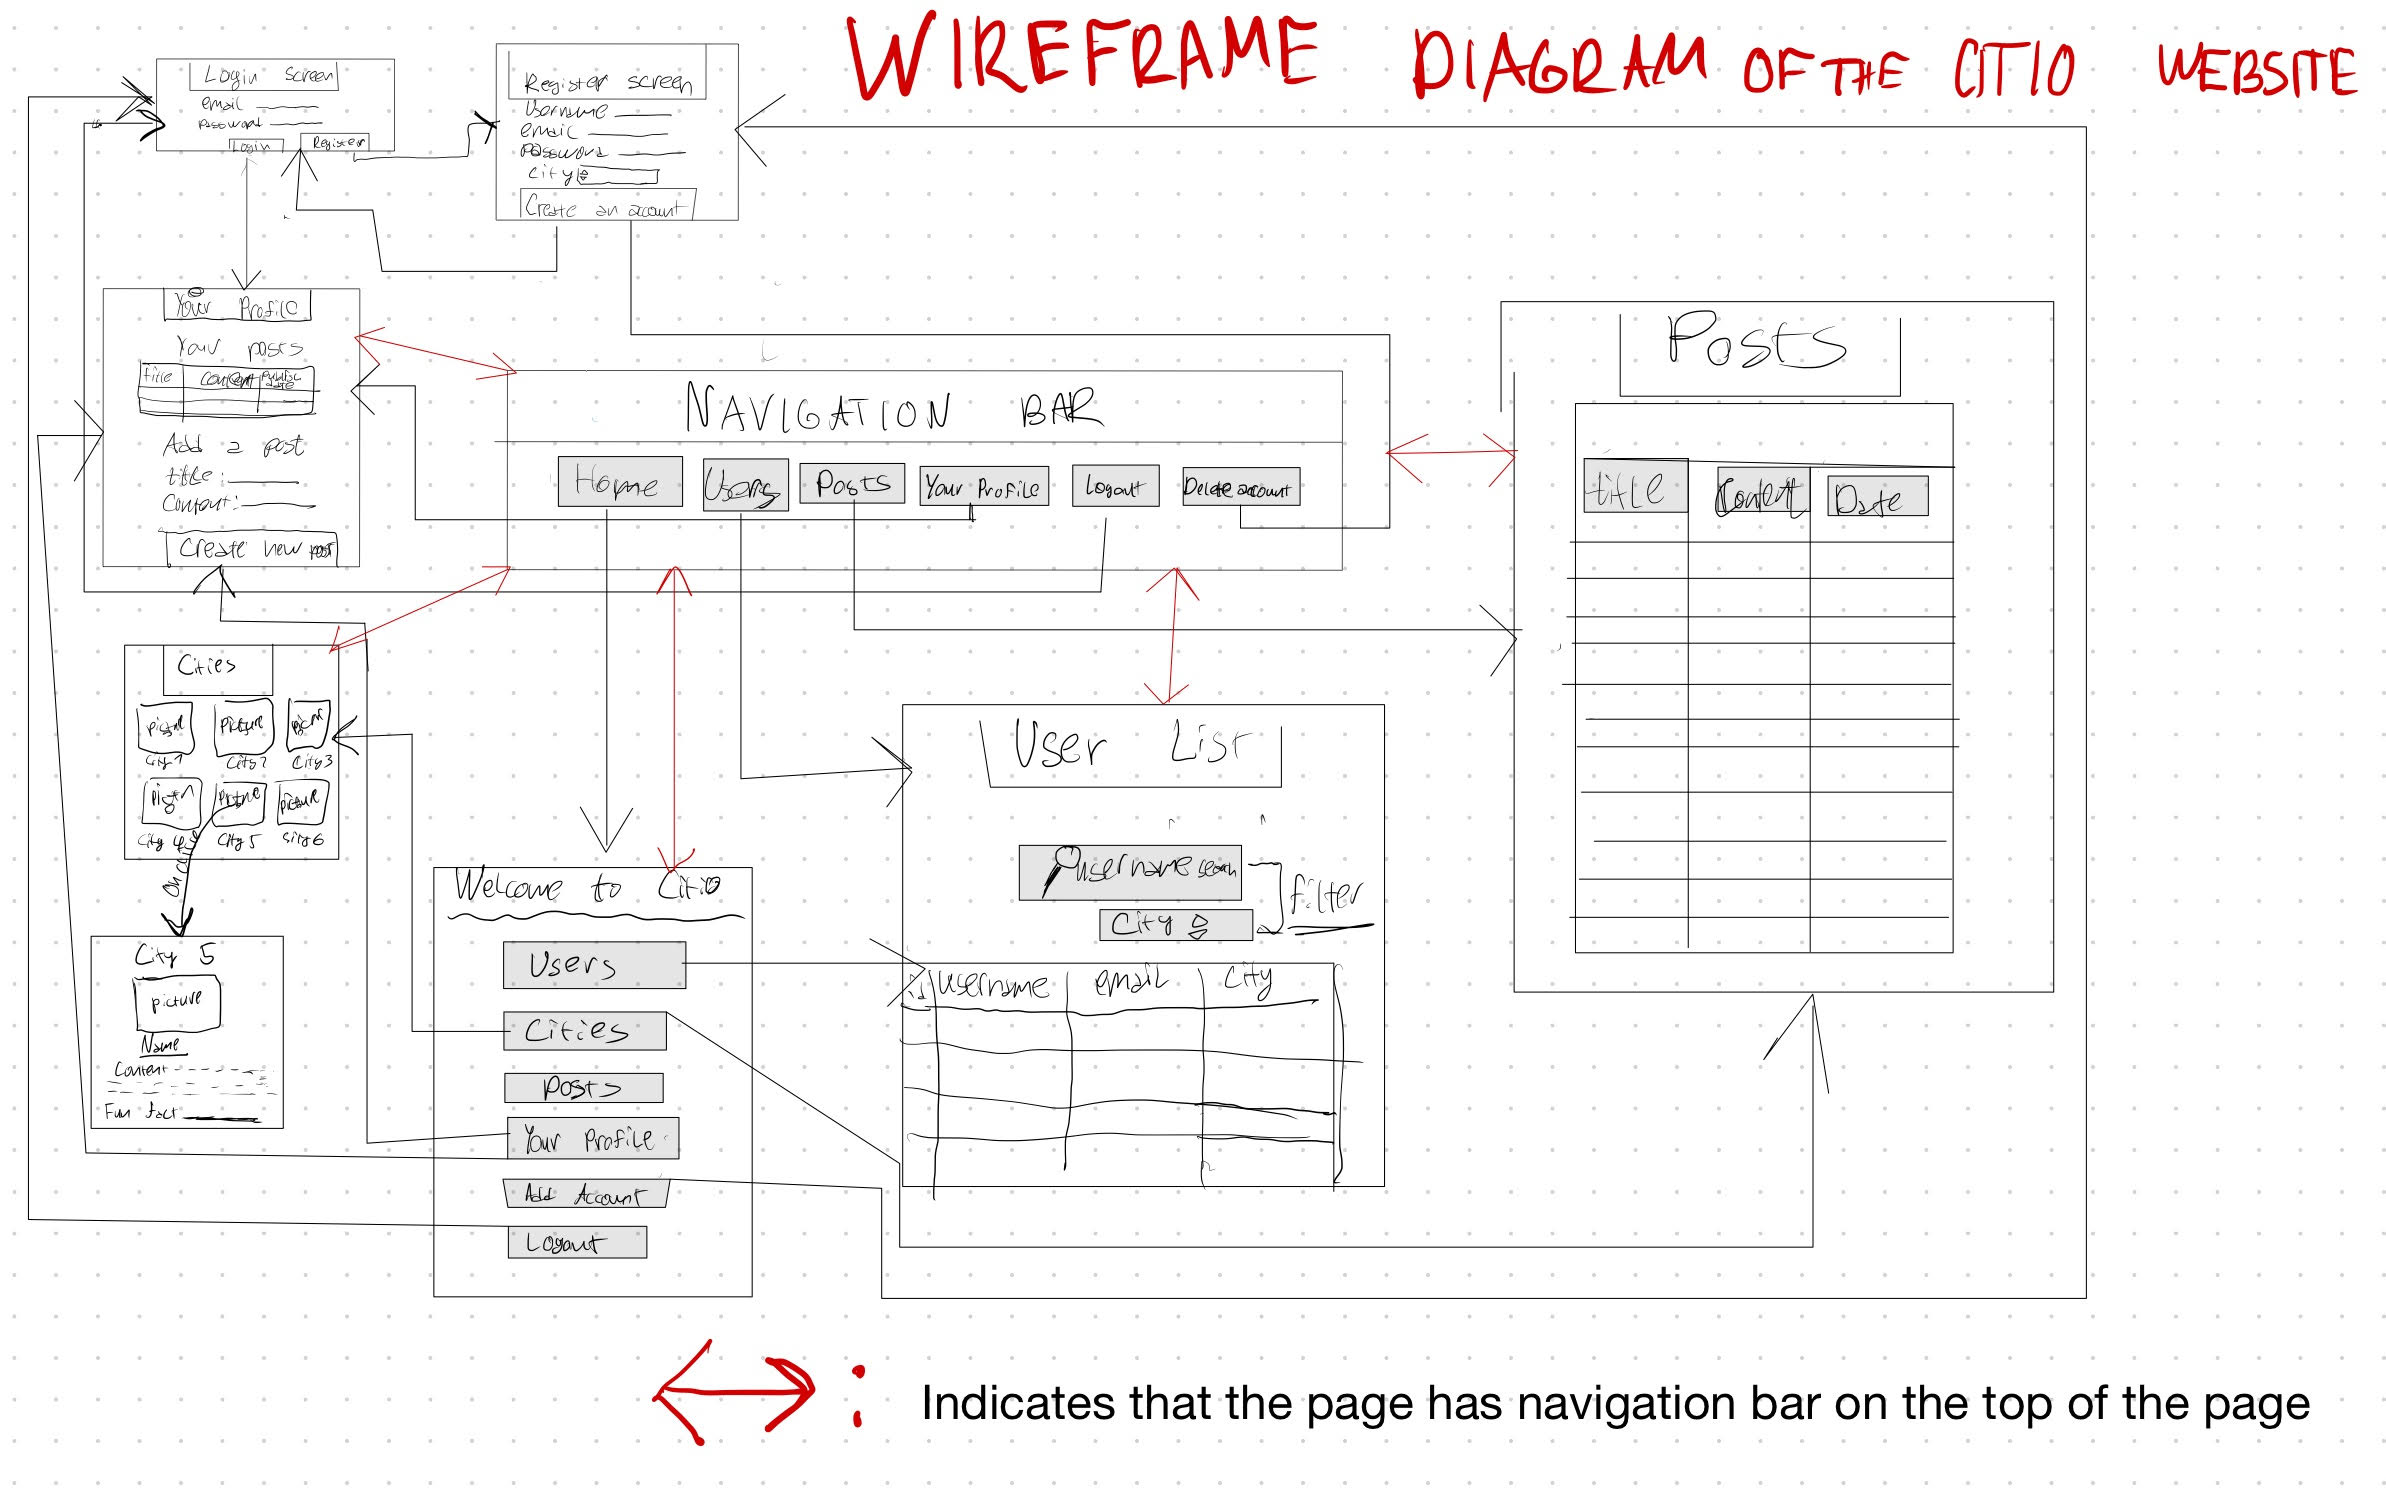 WIREFRAME DIAGRAM OF THE CITIO WEBSITE
Login screen
email
password
Login
Register
Register screen
Username
email
password
city
Create an account
Your Profile
Your posts
title content public date
Add a post
title:
Content:
Create new post
NAVIGATION BAR
Home Users Posts Your Profile Logout Delete account
Posts
title Content Date
Cities
picture picture
City 1 City 2 City 3
picture picture
City 4 City 5 City 6
On click
City 5
picture
Name
Content
Fun fact
Welcome to Citio
Users
Cities
Posts
Your Profile
Add Account
Logout
User List
username search
City
filter
id username email city
: Indicates that the page has navigation bar on the top of the page